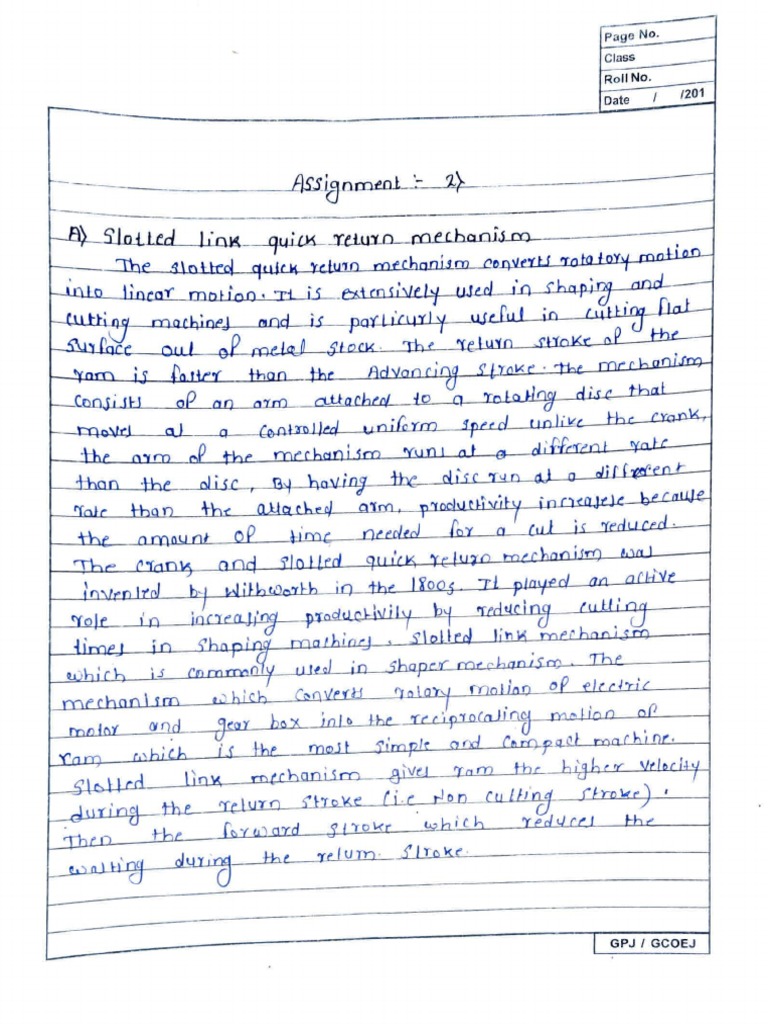 Page No.
Class
Roll No.
Date / /201
Assignment :- 2)
A) Slotted link quick return mechanism
The slotted quick return mechanism converts rotatory motion
into linear motion. It is extensively used in shaping and
cutting machines and is particurly useful in cutting flat
surface out of metal stock. The return stroke of the
ram is faster than the Advancing stroke. The mechanism
consists of an arm attached to a rotating disc that
moves at a controlled uniform speed unlike the crank,
the arm of the mechanism runs at a different rate
than the disc, By having the disc run at a different
rate than the attached arm, productivity increasele because
the amount of time needed for a cut is reduced.
The crank and slotted quick return mechanism was
invented by Withworth in the 1800s. It played an active
role in increasing productivity by reducing cutting
times in shaping machines. slotted link mechanism
which is commonly used in shaper mechanism. The
mechanism which converts rotary motion of electric
motor and gear box into the reciprocating motion of
ram which is the most simple and compact machine.
slotted link mechanism gives ram the higher velocity
during the return stroke (i.e Non cutting stroke).
Then the forward stroke which reduces the
waiting during the return stroke.
GPJ / GCOEJ